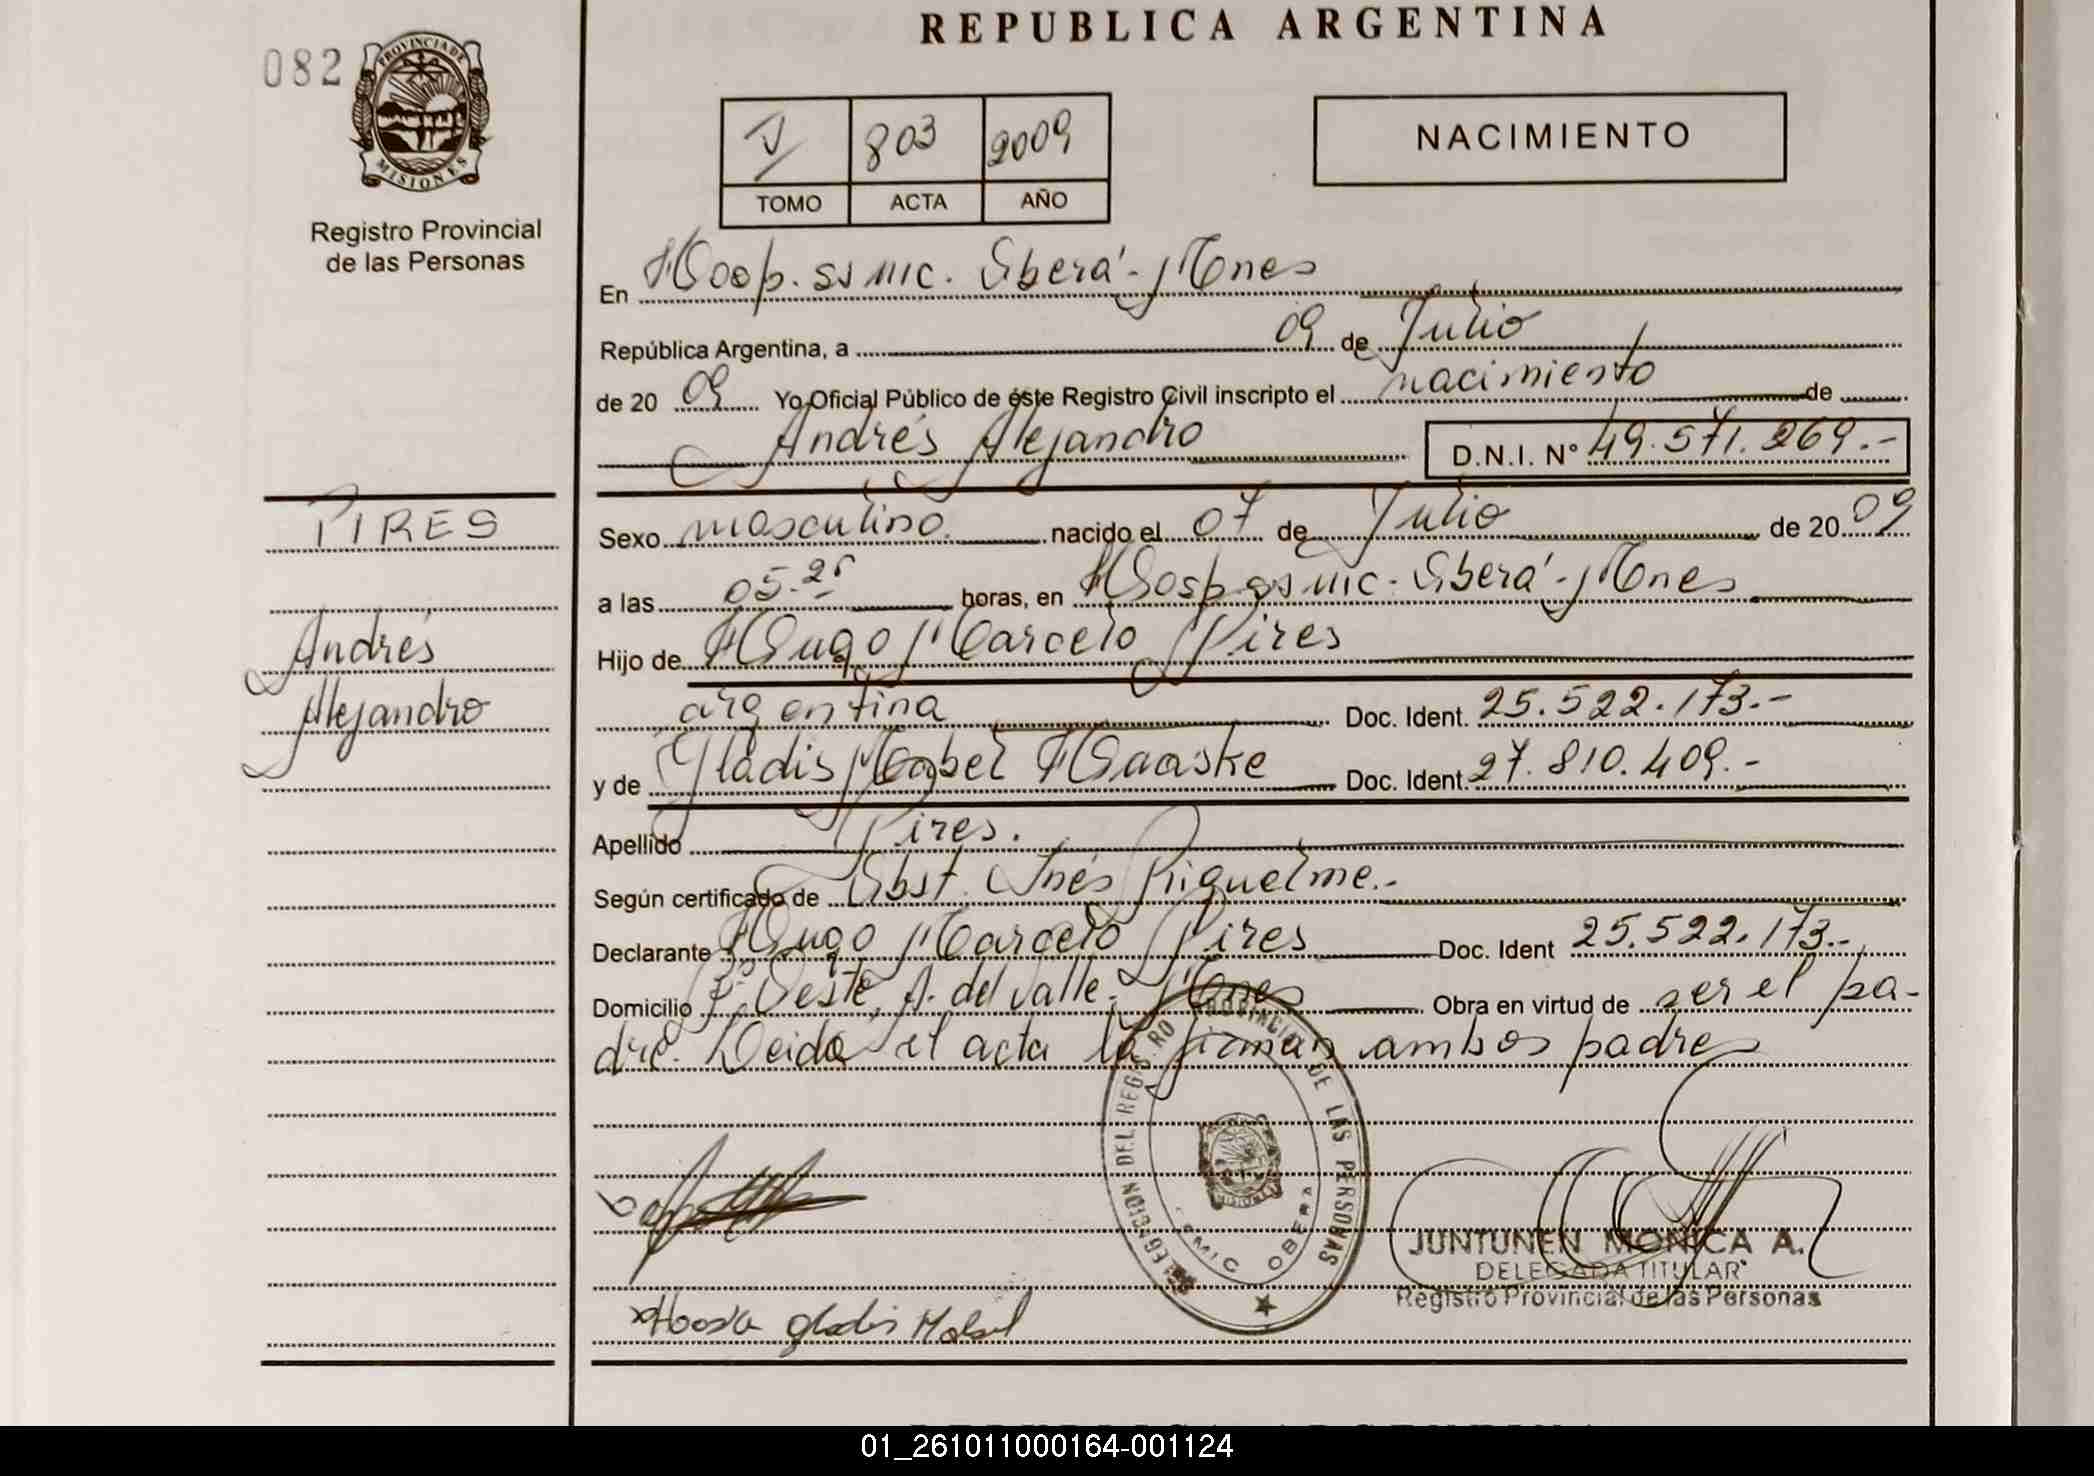 REPUBLICA ARGENTINA
082
PROVINCIA DE
MISIONES
Registro Provincial
de las Personas
V 803 2009
TOMO ACTA AÑO
NACIMIENTO
En Hosp. SS MIC. Oberá - Mnes
República Argentina, a 09 de Julio
de 20 09 Yo Oficial Público de éste Registro Civil inscripto el nacimiento de
Andrés Alejandro D.N.I. N° 49.571.269.-
PIRES
Andrés
Alejandro
Sexo masculino. nacido el 07 de Julio de 20 09
a las 05.25 horas, en Hosp SS MIC. Oberá - Mnes
Hijo de Hugo Marcelo Pires
argentina Doc. Ident. 25.522.173.-
y de Gladis Mabel Haaske Doc. Ident. 27.810.409.-
Apellido Pires.
Según certificado de Obst. Inés Riquelme.-
Declarante Hugo Marcelo Pires Doc. Ident 25.522.173.-
Domicilio Pº Oeste, A. del Valle. Mnes Obra en virtud de ser el pa-
dre. Leida el acta la firman ambos padres
DELEGACION DEL REGISTRO PROVINCIAL DE LAS PERSONAS
MISIONES
SAMIC OBERA
JUNTUNEN MONICA A.
DELEGADA TITULAR
Registro Provincial de las Personas
Gladis Mabel
01_261011000164-001124